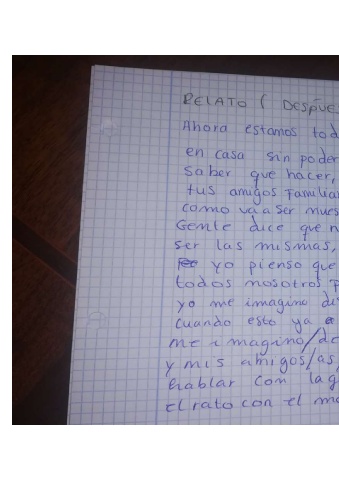 RELATO ( DESPUE
Ahora estamos tod
en casa sin poder
saber que hacer,
tus amigos Familia
como va a ser nues
Gente dice que n
ser las mismas,
yo pienso que
todos nosotros
yo me imagino di
cuando esto ya
me imagino/de
y mis amigos/as,
hablar con la g
el rato con el mo